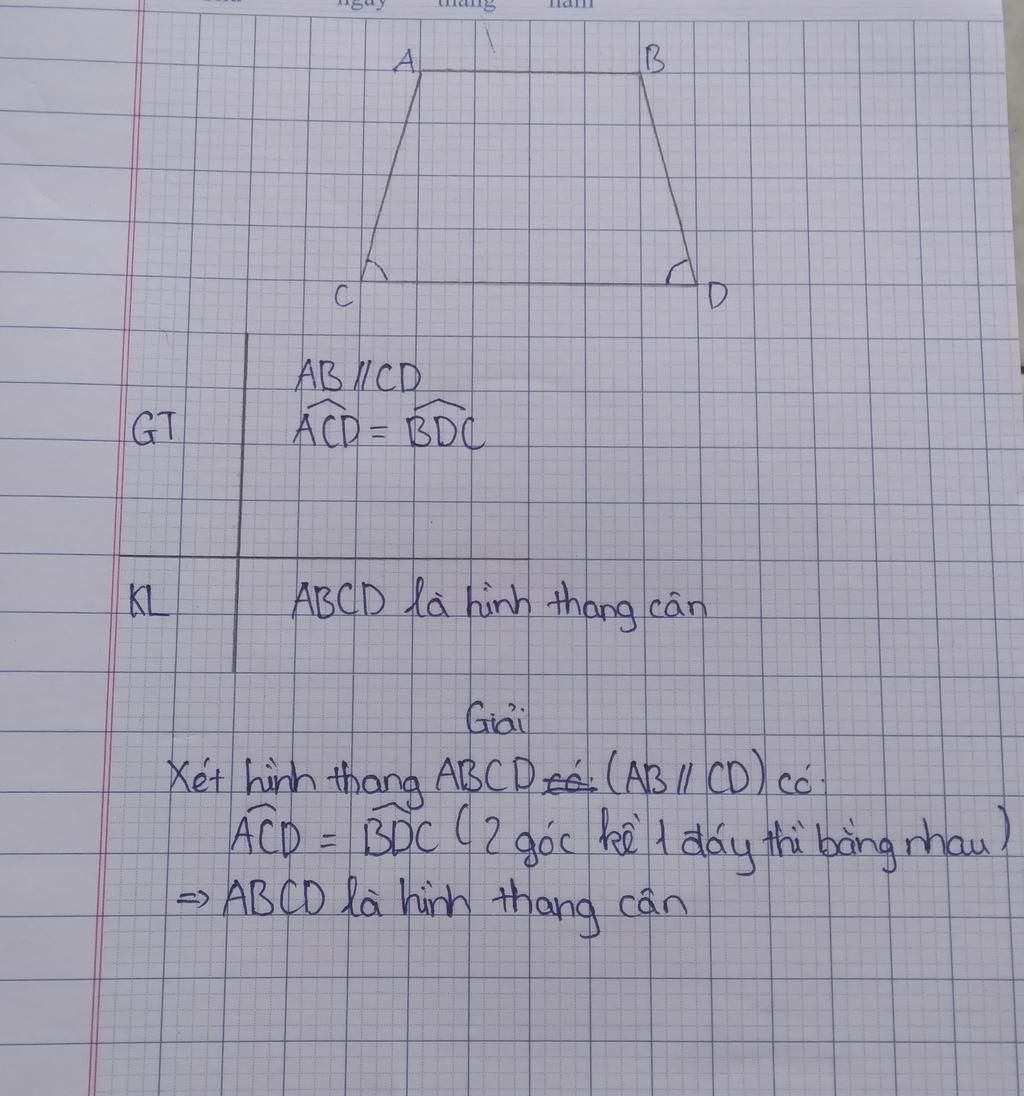 ngày tháng năm
A B
C D
AB // CD
GT ACD = BDC
KL ABCD là hình thang cân
Giải
Xét hình thang ABCD có: (AB // CD) có:
ACD = BDC (2 góc kề 1 đáy thì bằng nhau)
=> ABCD là hình thang cân